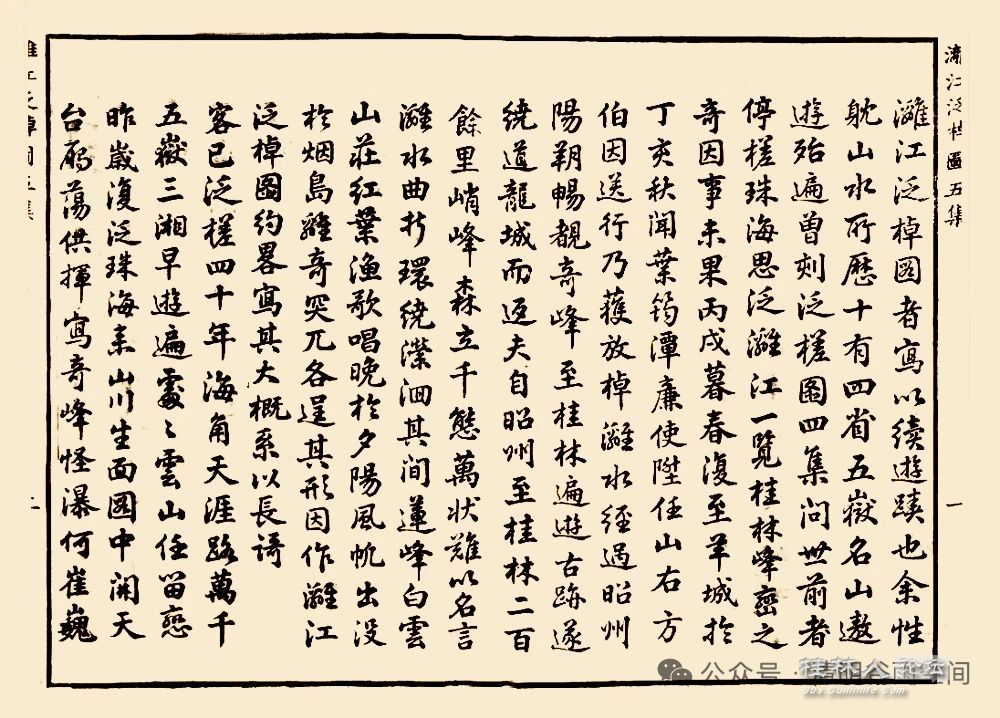 漓江泛棹圖五集
灕江泛棹圖者寫以續遊蹟也余性
躭山水所歷十有四省五嶽名山遨
遊殆遍曾刻泛槎圖四集問世前者
停槎珠海思泛灕江一覽桂林峰巒之
奇因事未果丙戌暮春復至羊城於
丁亥秋聞葉筠潭廉使陞任山右方
伯因送行乃獲放棹灕水經過昭州
陽朔暢觀奇峰至桂林遍遊古跡遂
繞道龍城而返夫自昭州至桂林二百
餘里峭峰森立千態萬狀難以名言
灕水曲折環繞瀠洄其间蓮峰白雲
山莊紅葉漁歌唱晚於夕陽風帆出没
於烟島離奇突兀各逞其形因作灕江
泛棹圖約畧寫其大概系以長謌
客已泛槎四十年海角天涯路萬千
五嶽三湘早遊遍處〻雲山任留戀
昨歲復泛珠海來山川生面圖中開天
台鴈蕩俱揮寫奇峰怪瀑何崔巍
一
二
公众号
桂林人论坛
bbs.Guilinlife.com